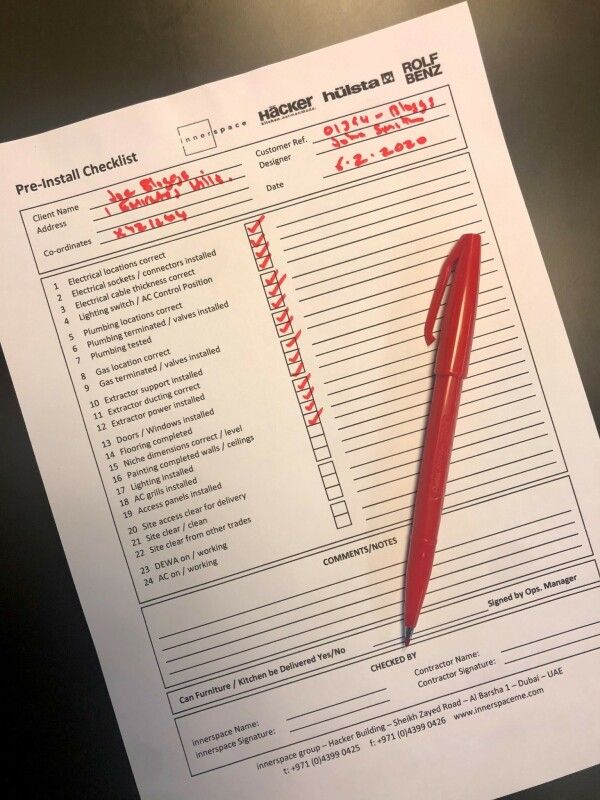 innerspace
HÄCKER
kitchen.germanMade.
hülsta
ROLF
BENZ
Pre-Install Checklist
Client Name Joe Bloggs
Address 1 Emirates Hills.
Co-ordinates XYZ1244
Customer Ref. 01264 - Bloggs
Designer John Smith
Date 6.2.2020
1 Electrical locations correct
2 Electrical sockets / connectors installed
3 Electrical cable thickness correct
4 Lighting switch / AC Control Position
5 Plumbing locations correct
6 Plumbing terminated / valves installed
7 Plumbing tested
8 Gas location correct
9 Gas terminated / valves installed
10 Extractor support installed
11 Extractor ducting correct
12 Extractor power installed
13 Doors / Windows installed
14 Flooring completed
15 Niche dimensions correct / level
16 Painting completed walls / ceilings
17 Lighting installed
18 AC grills installed
19 Access panels installed
20 Site access clear for delivery
21 Site clear / clean
22 Site clear from other trades
23 DEWA on / working
24 AC on / working
COMMENTS/NOTES
Can Furniture / Kitchen be Delivered Yes/No
Signed by Ops. Manager
CHECKED BY
innerspace Name:
innerspace Signature:
Contractor Name:
Contractor Signature:
innerspace group – Hacker Building – Sheikh Zayed Road – Al Barsha 1 – Dubai – UAE
t: +971 (0)4399 0425 f: +971 (0)4399 0426 www.innerspaceme.com